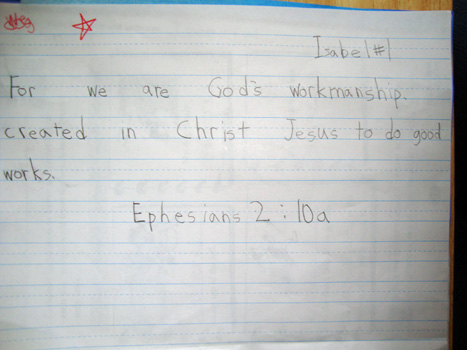 Isabel #1
For we are God's workmanship.
created in Christ Jesus to do good
works.
Ephesians 2:10a